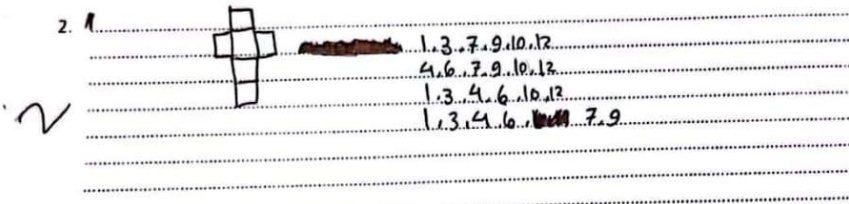 2. 1
1.3.7.9.10.12
4.6.7.9.10.12
1.3.4.6.10.12
1.3.4.6. 7.9
2